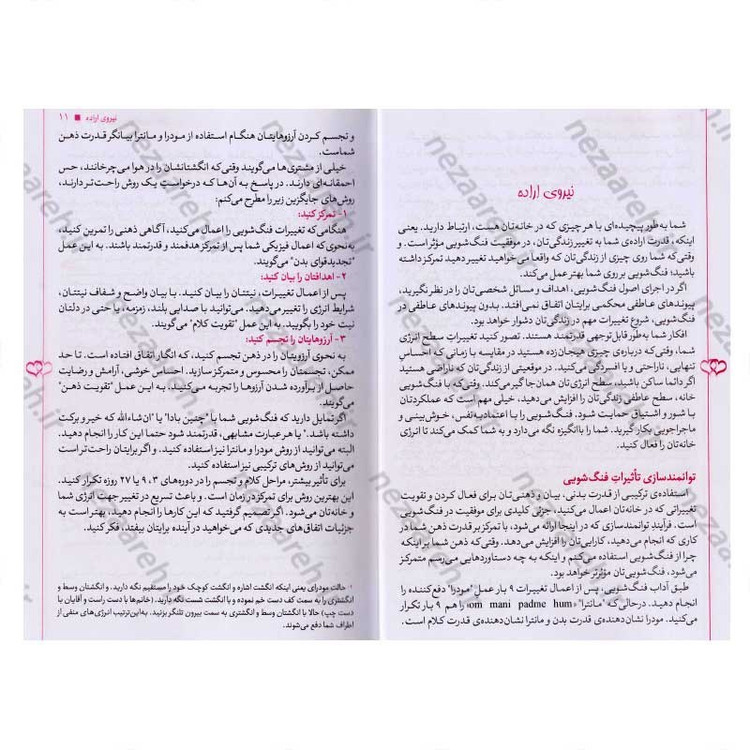 نیروی اراده
شما به‌طور پیچیده‌ای با هر چیزی که در خانه‌تان هست، ارتباط دارید. یعنی
اینکه، قدرت اراده‌ی شما به تغییر زندگی‌تان، در موفقیت فنگ‌شویی مؤثر است. و
وقتی که شما روی چیزی از زندگی‌تان که واقعاً می‌خواهید تغییر دهید تمرکز داشته
باشید؛ فنگ‌شویی بر روی شما بهتر عمل می‌کند.
اگر در اجرای اصول فنگ‌شویی، اهداف و مسائل شخصی‌تان را در نظر نگیرید،
پیوندهای عاطفی محکمی برایتان اتفاق نمی‌افتد. بدون پیوندهای عاطفی در
فنگ‌شویی، شروع تغییرات مهم در زندگی‌تان دشوار خواهد بود.
افکار شما به‌طور قابل‌توجهی قدرتمند هستند. تصور کنید تغییرات سطح انرژی
شما، وقتی که درباره‌ی چیزی هیجان‌زده هستید در مقایسه با زمانی که احساس
تنهایی، ناراحتی و یا افسردگی می‌کنید. در موقعیتی از زندگی‌تان که ناراضی هستید
اگر دائما ساکن باشید، سطح انرژی‌تان همان‌جا گیر می‌کند. وقتی که با فنگ‌شویی
خانه، سطح عاطفی زندگی‌تان را افزایش می‌دهید، خیلی مهم است که عملکردتان
با شور و اشتیاق حمایت شود. فنگ‌شویی را با اعتمادبه‌نفس، خوش‌بینی و
ماجراجویی بکار گیرید. شما را باانگیزه نگه می‌دارد و به شما کمک می‌کند تا انرژی
خانه‌تان را فعال کنید.
توانمندسازی تأثیرات فنگ‌شویی
استفاده‌ی ترکیبی از قدرت بدنی، بیان و ذهنی‌تان برای فعال کردن و تقویت
تغییراتی که در خانه‌تان اعمال می‌کنید، جزئی کلیدی برای موفقیت در فنگ‌شویی
است. فرآیند توانمندسازی که در اینجا ارائه می‌شود، با تمرکز بر قدرت ذهن شما در
کاری که انجام می‌دهید، کارایی‌تان را افزایش می‌دهد. وقتی که ذهن شما بر اینکه
چرا از فنگ‌شویی استفاده می‌کنم و اینکه به چه دستاوردهایی می‌رسم متمرکز
می‌شود، فنگ‌شویی‌تان مؤثرتر خواهد بود.
طبق آداب فنگ‌شویی، پس از اعمال تغییرات ۹ بار عمل "مودرا" دفع‌کننده را
انجام دهید. درحالی‌که "مانترا" «om mani padme hum» را هم ۹ بار تکرار
می‌کنید. مودرا نشان‌دهنده‌ی قدرت بدن و مانترا نشان‌دهنده‌ی قدرت کلام است.
نیروی اراده ■ ۱۱
و تجسم کردن آرزوهایتان هنگام استفاده از مودرا و مانترا بیانگر قدرت ذهن
شماست.
خیلی از مشتری‌ها می‌گویند وقتی که انگشتانشان را در هوا می‌چرخانند، حس
احمقانه‌ای دارند. در پاسخ به آن‌ها که درخواست یک روش راحت‌تر دارند،
روش‌های جایگزین زیر را مطرح می‌کنم:
۱- تمرکز کنید:
هنگامی که تغییرات فنگ‌شویی را اعمال می‌کنید، آگاهی ذهنی را تمرین کنید،
به‌نحوی که اعمال فیزیکی شما پس از تمرکز هدفمند و قدرتمند باشند. به این عمل
"تجدید قوای بدن" می‌گویند.
۲- اهدافتان را بیان کنید:
پس از اعمال تغییرات، نیتتان را بیان کنید. با بیان واضح و شفاف نیتتان،
شرایط انرژی را تغییر می‌دهید. می‌توانید با صدایی بلند، زمزمه، یا حتی در دلتان
نیت خود را بگویید. به این عمل "تقویت کلام" می‌گویند.
۳- آرزوهایتان را تجسم کنید:
به نحوی آرزویتان را در ذهن تجسم کنید، که انگار اتفاق افتاده است. تا حد
ممکن، تجسمتان را محسوس و متمرکز سازید. احساس خوشی، آرامش و رضایت
حاصل از برآورده شدن آرزوها را تجربه می‌کنید. به این عمل "تقویت ذهن"
می‌گویند.
اگر تمایل دارید که فنگ‌شویی شما با "چنین بادا" یا "ان‌شاءالله که خیر و برکت
داشته باشد." یا هر عبارت مشابهی، قدرتمند شود حتما این کار را انجام دهید.
البته می‌توانید از روش مودرا و مانترا نیز استفاده کنید. و اگر برایتان راحت‌تر است
می‌توانید از روش‌های ترکیبی نیز استفاده کنید.
برای تأثیر بیشتر، مراحل کلام و تجسم را در دوره‌های ۳، ۹ یا ۲۷ روزه تکرار کنید.
این بهترین روش برای تمرکز در زمان است. و باعث تسریع در تغییر جهت انرژی شما
می‌شود. اگر تصمیم گرفتید که این کارها را انجام دهید، بهتر است به
جزئیات اتفاق‌های جدیدی که می‌خواهید در آینده برایتان بیفتد، فکر کنید.
حالت مودرای یعنی اینکه انگشت اشاره و انگشت کوچک خود را مستقیم نگه دارید. و انگشتان وسط و
انگشتری را به سمت کف دست خم نموده و با انگشت شست نگه دارید. (خانم‌ها با دست راست و آقایان با
دست چپ) حالا با انگشتان وسط و انگشتری به سمت بیرون تلنگر بزنید. به‌این‌ترتیب انرژی‌های منفی از
اطراف شما دفع می‌شوند.
nezaareh.ir